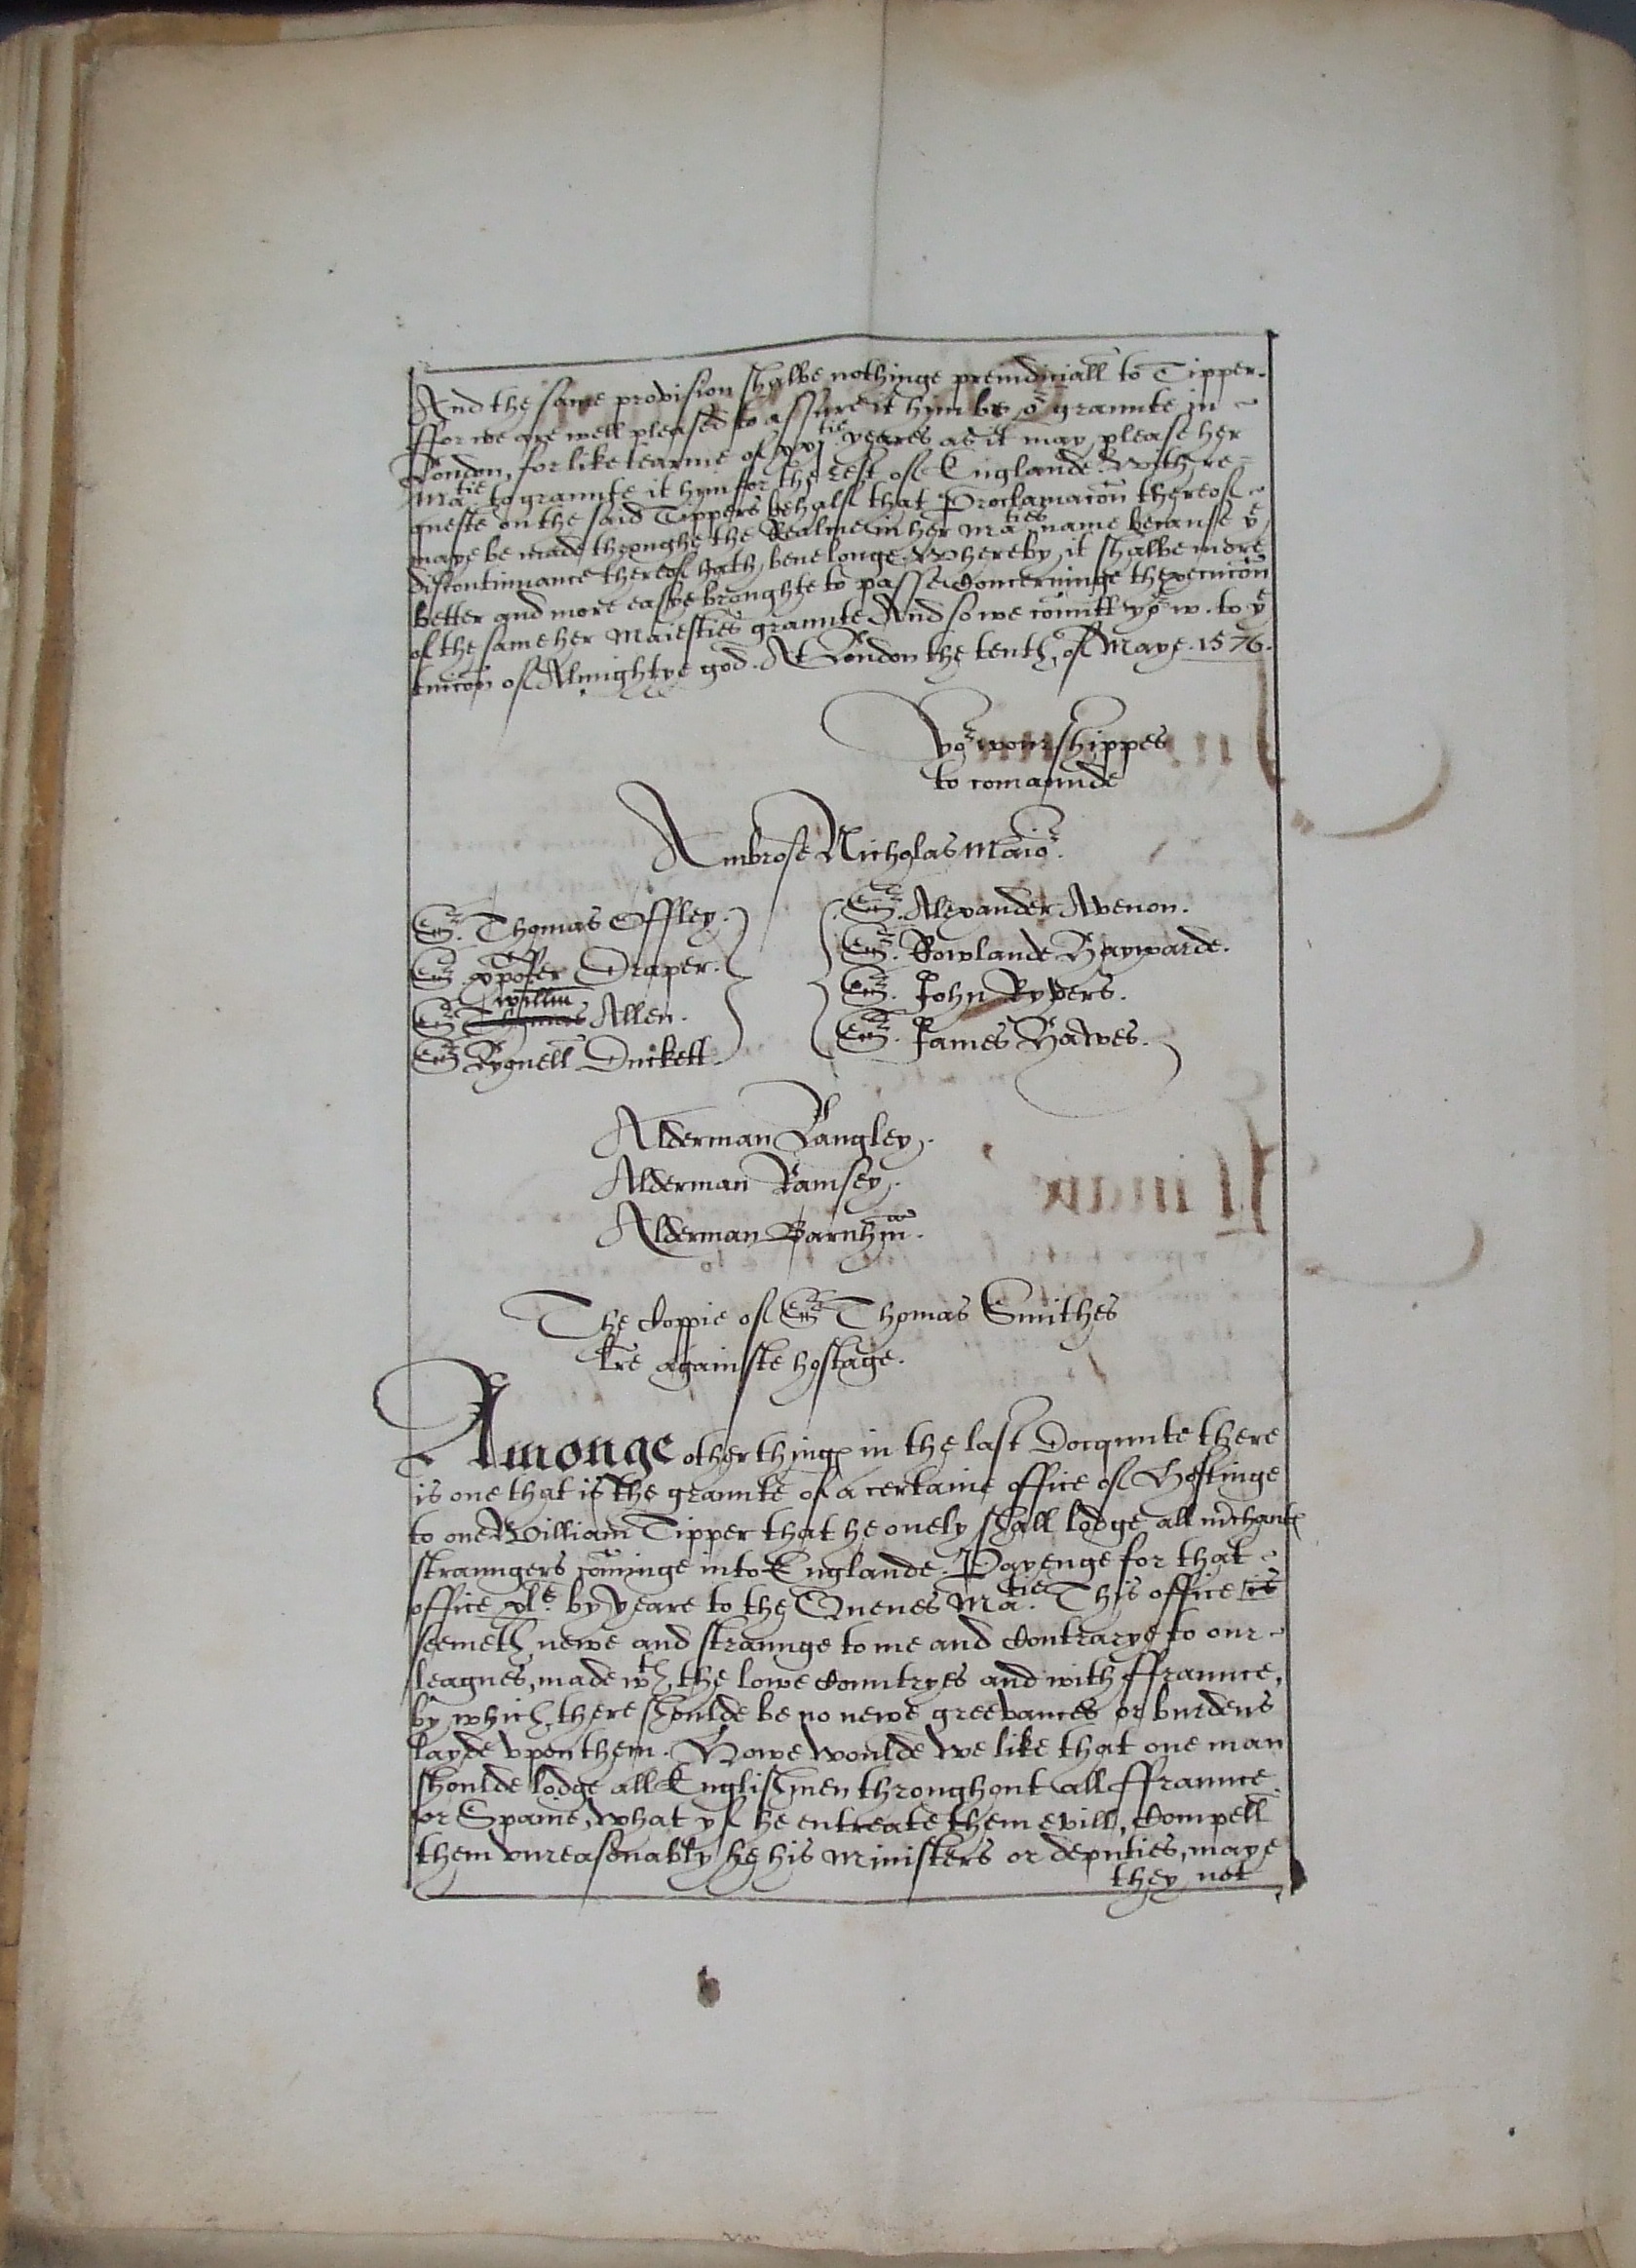 And the same provision shalbe nothinge preiudiciall to Tipper.
ffor we are well pleased to assure it hym by or graunte in
London, for like tearme of xxjtie yeares as it may please her
Matie to graunte it hym for the rest of Englande. With re=
queste on the said Tippers behalf that Proclamacõn thereof
maye be made throughe the Realme in her Maties name because ye
discontinuance thereof hath bene longe. Whereby it shalbe more
better and more easye broughte to passe concerninge thexecucõn
of the same her Maiesties graunte And so we cõmitt yor w. to ye
tuicõn of Almightye god. At London the tenth of Maye. 1576.
Yor wourshippes
to comaunde
Ambrose Nicholas Maior.
Sr. Thomas Offley.
Sr. Alexander Avenon.
Sr xpofer Draper.
Sr. Rowlande Haywarde.
Willm
Sr Thomas Allen.
Sr. John Ryvers.
Sr Lyonell Duckett.
Sr. James Hawes.
Alderman Langley.
Alderman Ramsey.
Alderman Barnhm̃.
The Coppie of Sr Thomas Smithes
lr̃e againste hostage.
Amonge other things in the last Docqunte there
is one that is the graunte of a certaine office of Hostinge
to one William Tipper that he onely shall lodge all m̃chants
straungers com̃inge into Englande. Payenge for that
office xls. by yeare to the Quenes Matie. This office is
seemeth newe and straunge to me and contrarye to our
leagues, made wth the lowe Countryes and with ffraunce,
by which there shoulde be no newe greevances or burdens
layde vpon them. Howe woulde we like that one man
shoulde lodge all Englishmen throughout all ffraunce
or Spaine, what yf he entreate them evill, Compell
them vnreasonably he his Ministers or deputies, maye
they not